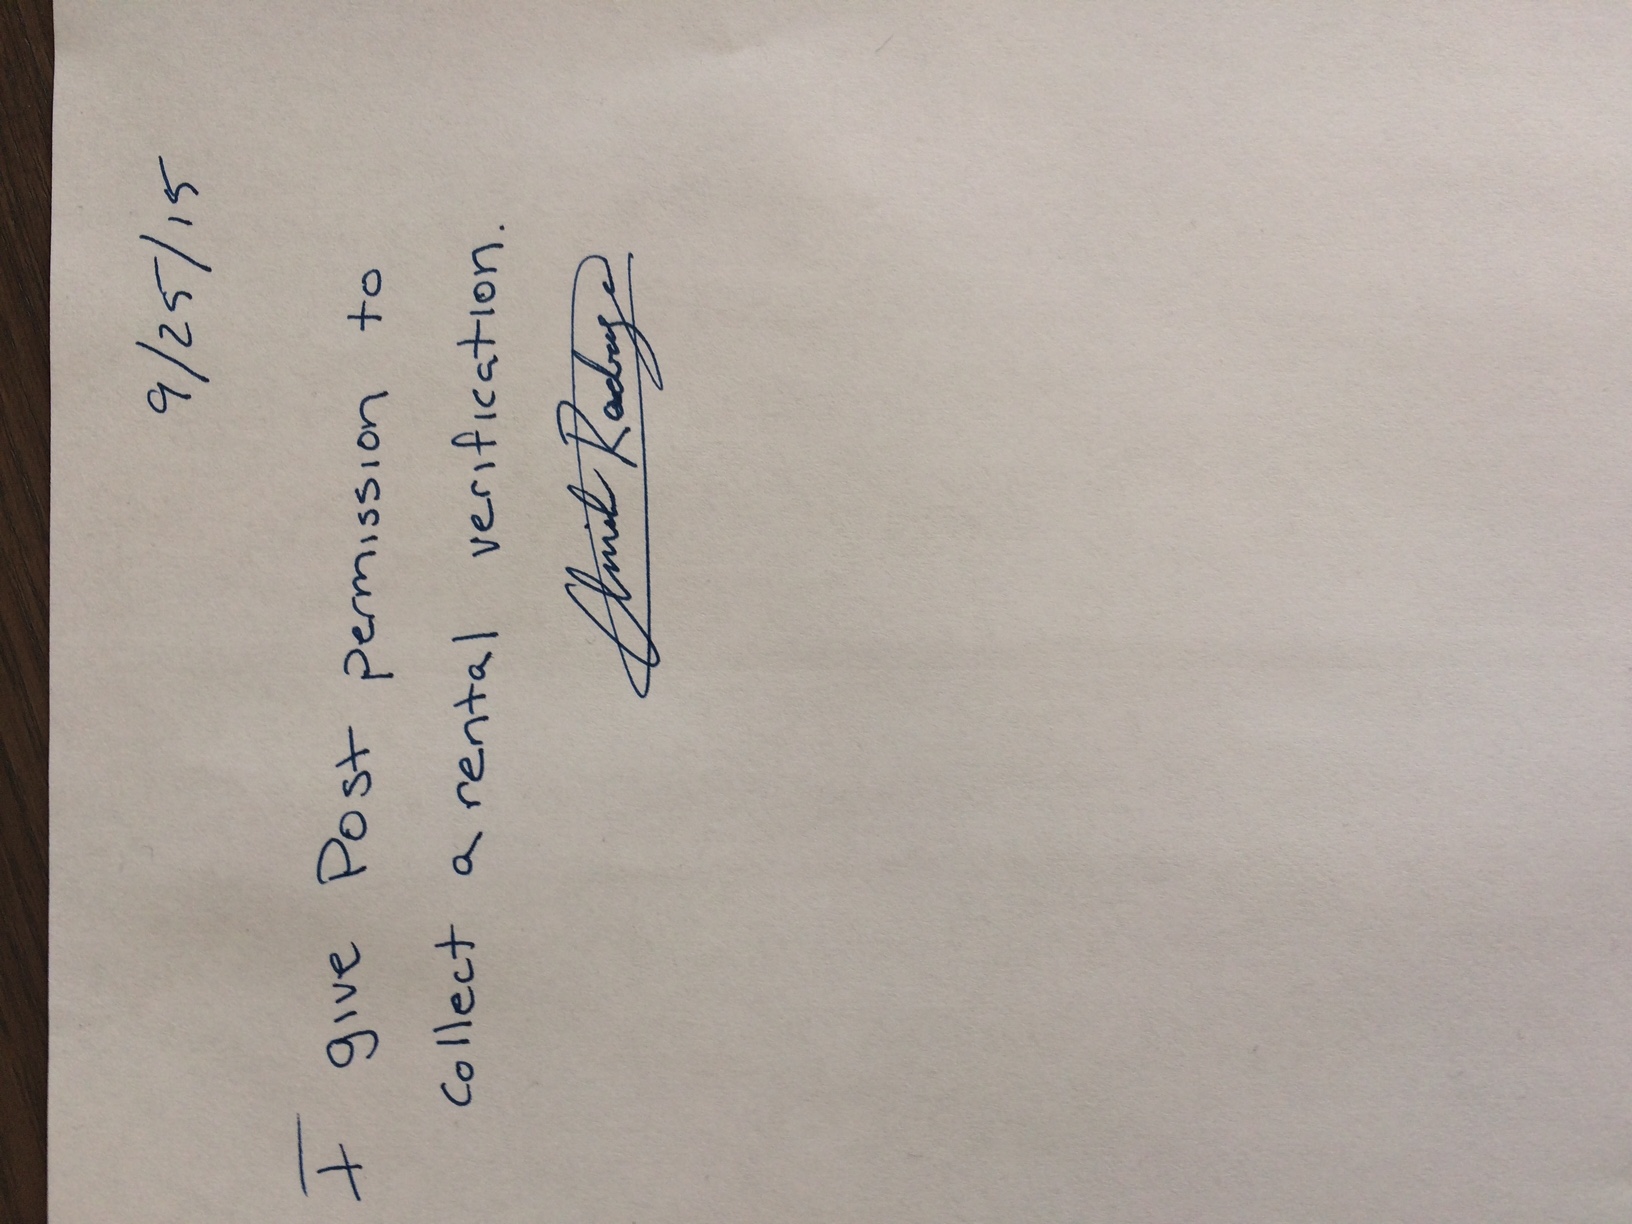 9/25/15
I give Post permission to
collect a rental verification.